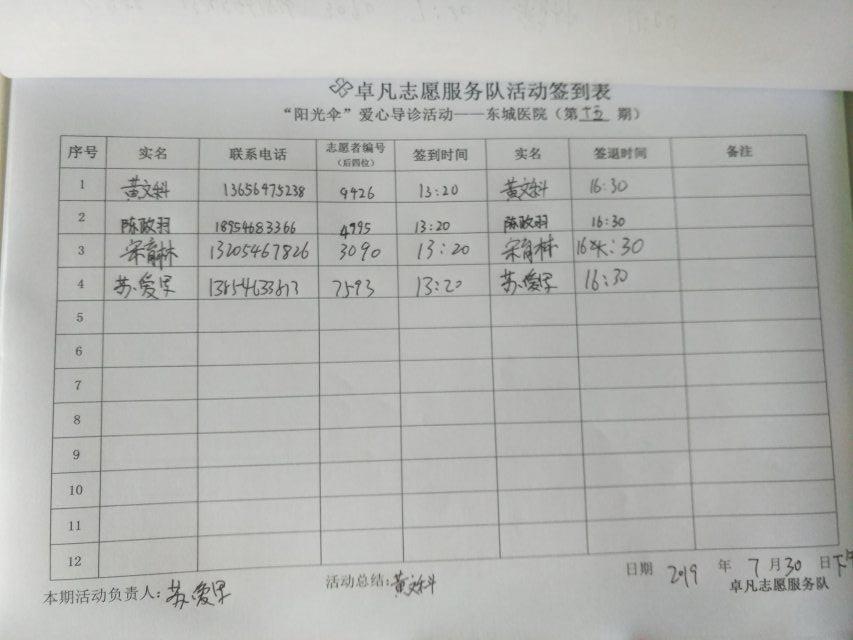 卓凡志愿服务队活动签到表
“阳光伞”爱心导诊活动——东城医院（第十五期）
序号 实名 联系电话 志愿者编号（后四位） 签到时间 实名 签退时间 备注
1 黄文科 13656475238 9426 13:20 黄文科 16:30
2 陈政羽 18954683366 4995 13:20 陈政羽 16:30
3 宋育林 13205467826 3090 13:20 宋育林 16:30
4 苏爱 7593 13:20 苏爱 16:30
5
6
7
8
9
10
11
12
日期 2019 年 7 月 30 日下午
本期活动负责人：苏爱 活动总结：黄文科 卓凡志愿服务队